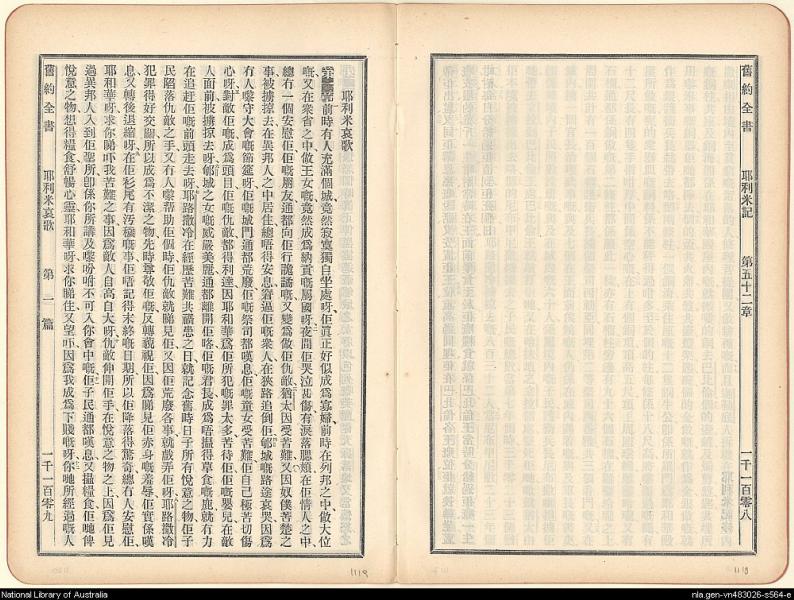 舊約全書 耶利米記 第五十二章 一千一百零八
耶利米哀歌
前時有人充滿個城竟然寂寞獨自坐處呀佢眞正好似成爲寡婦前時在列邦之中做大位
嘅又在衆省之中做王女嘅竟然成爲納貢嘅屬國呀夜間佢哭泣甚傷有淚落腮頰在佢情人之中
總冇一個安慰佢佢嘅朋友通都向佢行詭譎嘅又變爲做佢仇敵猶太因受苦難又因奴僕苦楚之
事被擄去在異邦人之中居住總唔得安息窘逼佢嘅衆人在狹路追倒佢郇城嘅路途哀哭因爲
冇人嚟守大會嘅節筵呀佢嘅城門通都荒廢佢嘅祭司都嘆息佢嘅童女受苦難佢自己極苦切傷
心呀對敵佢嘅成爲頭目佢嘅仇敵都得利達因耶和華爲佢所犯嘅罪太多苦待佢佢嘅嬰兒在敵
人面前被擄掠去呀郇城之女嘅威嚴美麗通都離開佢咯佢嘅君長成爲唔搵得草食嘅鹿就冇力
在追趕佢嘅前頭走去呀耶路撒冷在經歷苦難共禍患之日就記念舊時日子所有悅意之物佢子
民陷落仇敵之手又冇人嚟帮助佢個時佢仇敵就睇見佢又因佢荒廢各事就戲弄佢呀耶路撒冷
犯罪得好交關所以成爲不潔之物先時尊敬佢嘅反轉藐視佢因爲睇見佢赤身嘅羞辱佢實係嘆
息又轉後退縮呀在佢衫尾有汚穢嘅事佢唔記得末終嘅日期所以佢降落得驚奇總冇人安慰佢
耶和華呀求你睇吓我苦難之事因爲敵人自高自大呀仇敵伸開佢手在悅意之物之上因爲佢見
過異邦人入到佢聖所卽係你所講及嚟吩咐不可入你會中嘅佢子民通都嘆息又搵糧食佢哋俾
悅意之物想得糧食舒暢心靈耶和華呀求你睇住又望吓因爲我成爲下賤嘅呀你哋所經過嘅人
舊約全書 耶利米哀歌 第一篇 一千一百零九
National Library of Australia
nla.gen-vn483026-s564-e